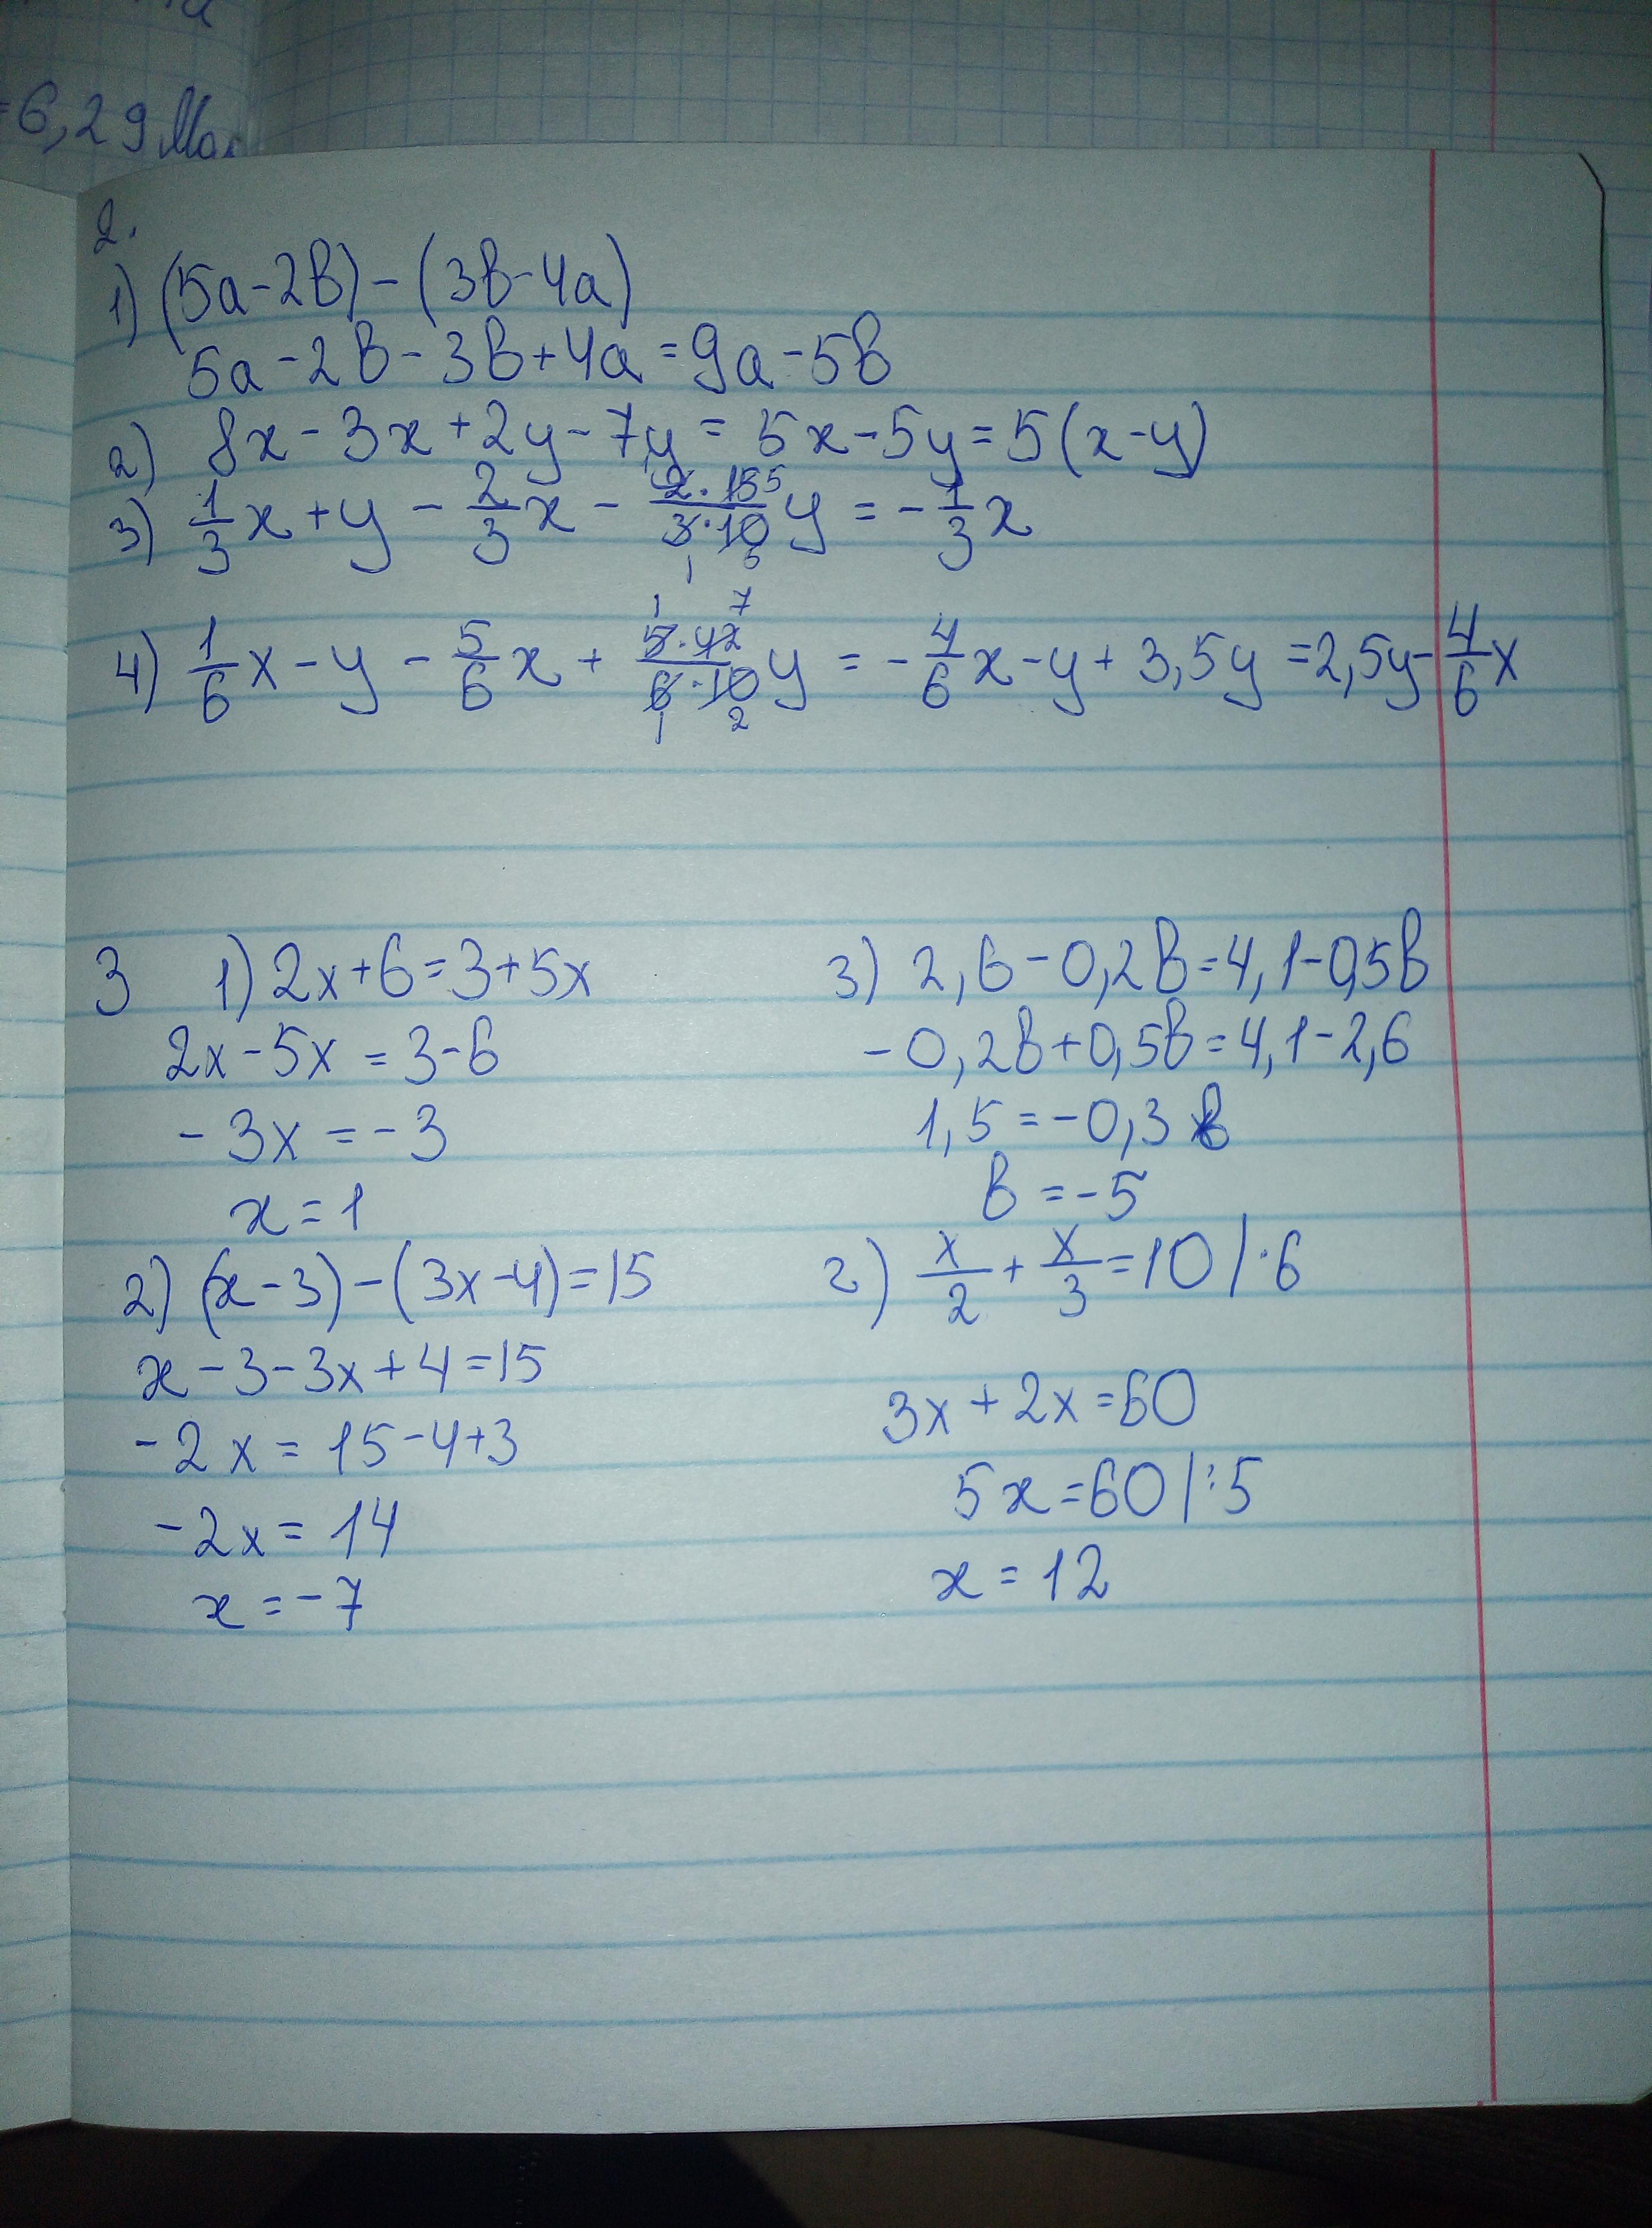 =6,29 Мол
2.
1) (5a-2b)-(3b-4a)
5a-2b-3b+4a=9a-5b
2) 8x-3x+2y-7y=5x-5y=5(x-y)
3) 1/3 x+y-2/3 x-(2·15 5)/(3·10)y=-1/3 x
1 5
1 7
4) 1/6 x-y-5/6 x+(5·42)/(6·10)y=-4/6 x-y+3,5y=2,5y-4/6 x
1 2
3 1) 2x+6=3+5x
2x-5x=3-6
-3x=-3
x=1
2) (x-3)-(3x-4)=15
x-3-3x+4=15
-2x=15-4+3
-2x=14
x=-7
3) 2,6-0,2b=4,1-0,5b
-0,2b+0,5b=4,1-2,6
1,5=-0,3b
b=-5
г) x/2+x/3=10|·6
3x+2x=60
5x=60|:5
x=12